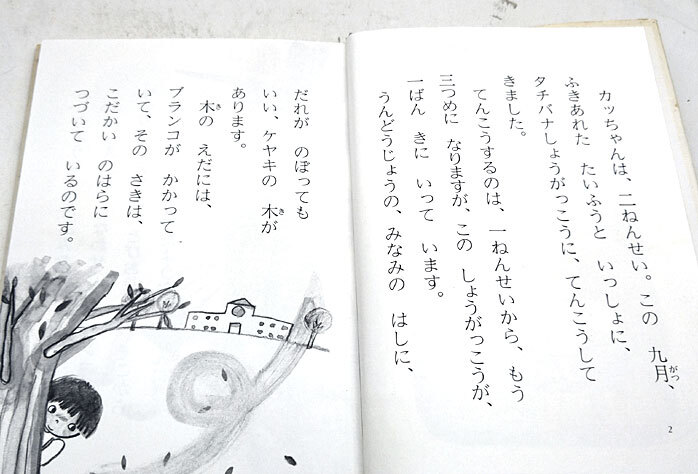 カッちゃんは、二ねんせい。この 九月、
がつ
ふきあれた たいふうと いっしょに、
タチバナしょうがっこうに、てんこうして
きました。
てんこうするのは、一ねんせいから、もう
三つめに なりますが、この しょうがっこうが、
一ばん きに いって います。
うんどうじょうの、みなみの はしに、
2
だれが のぼっても
いい、ケヤキの 木が
き
あります。
木の えだには、
き
ブランコが かかって
いて、その さきは、
こだかい のはらに
つづいて いるのです。